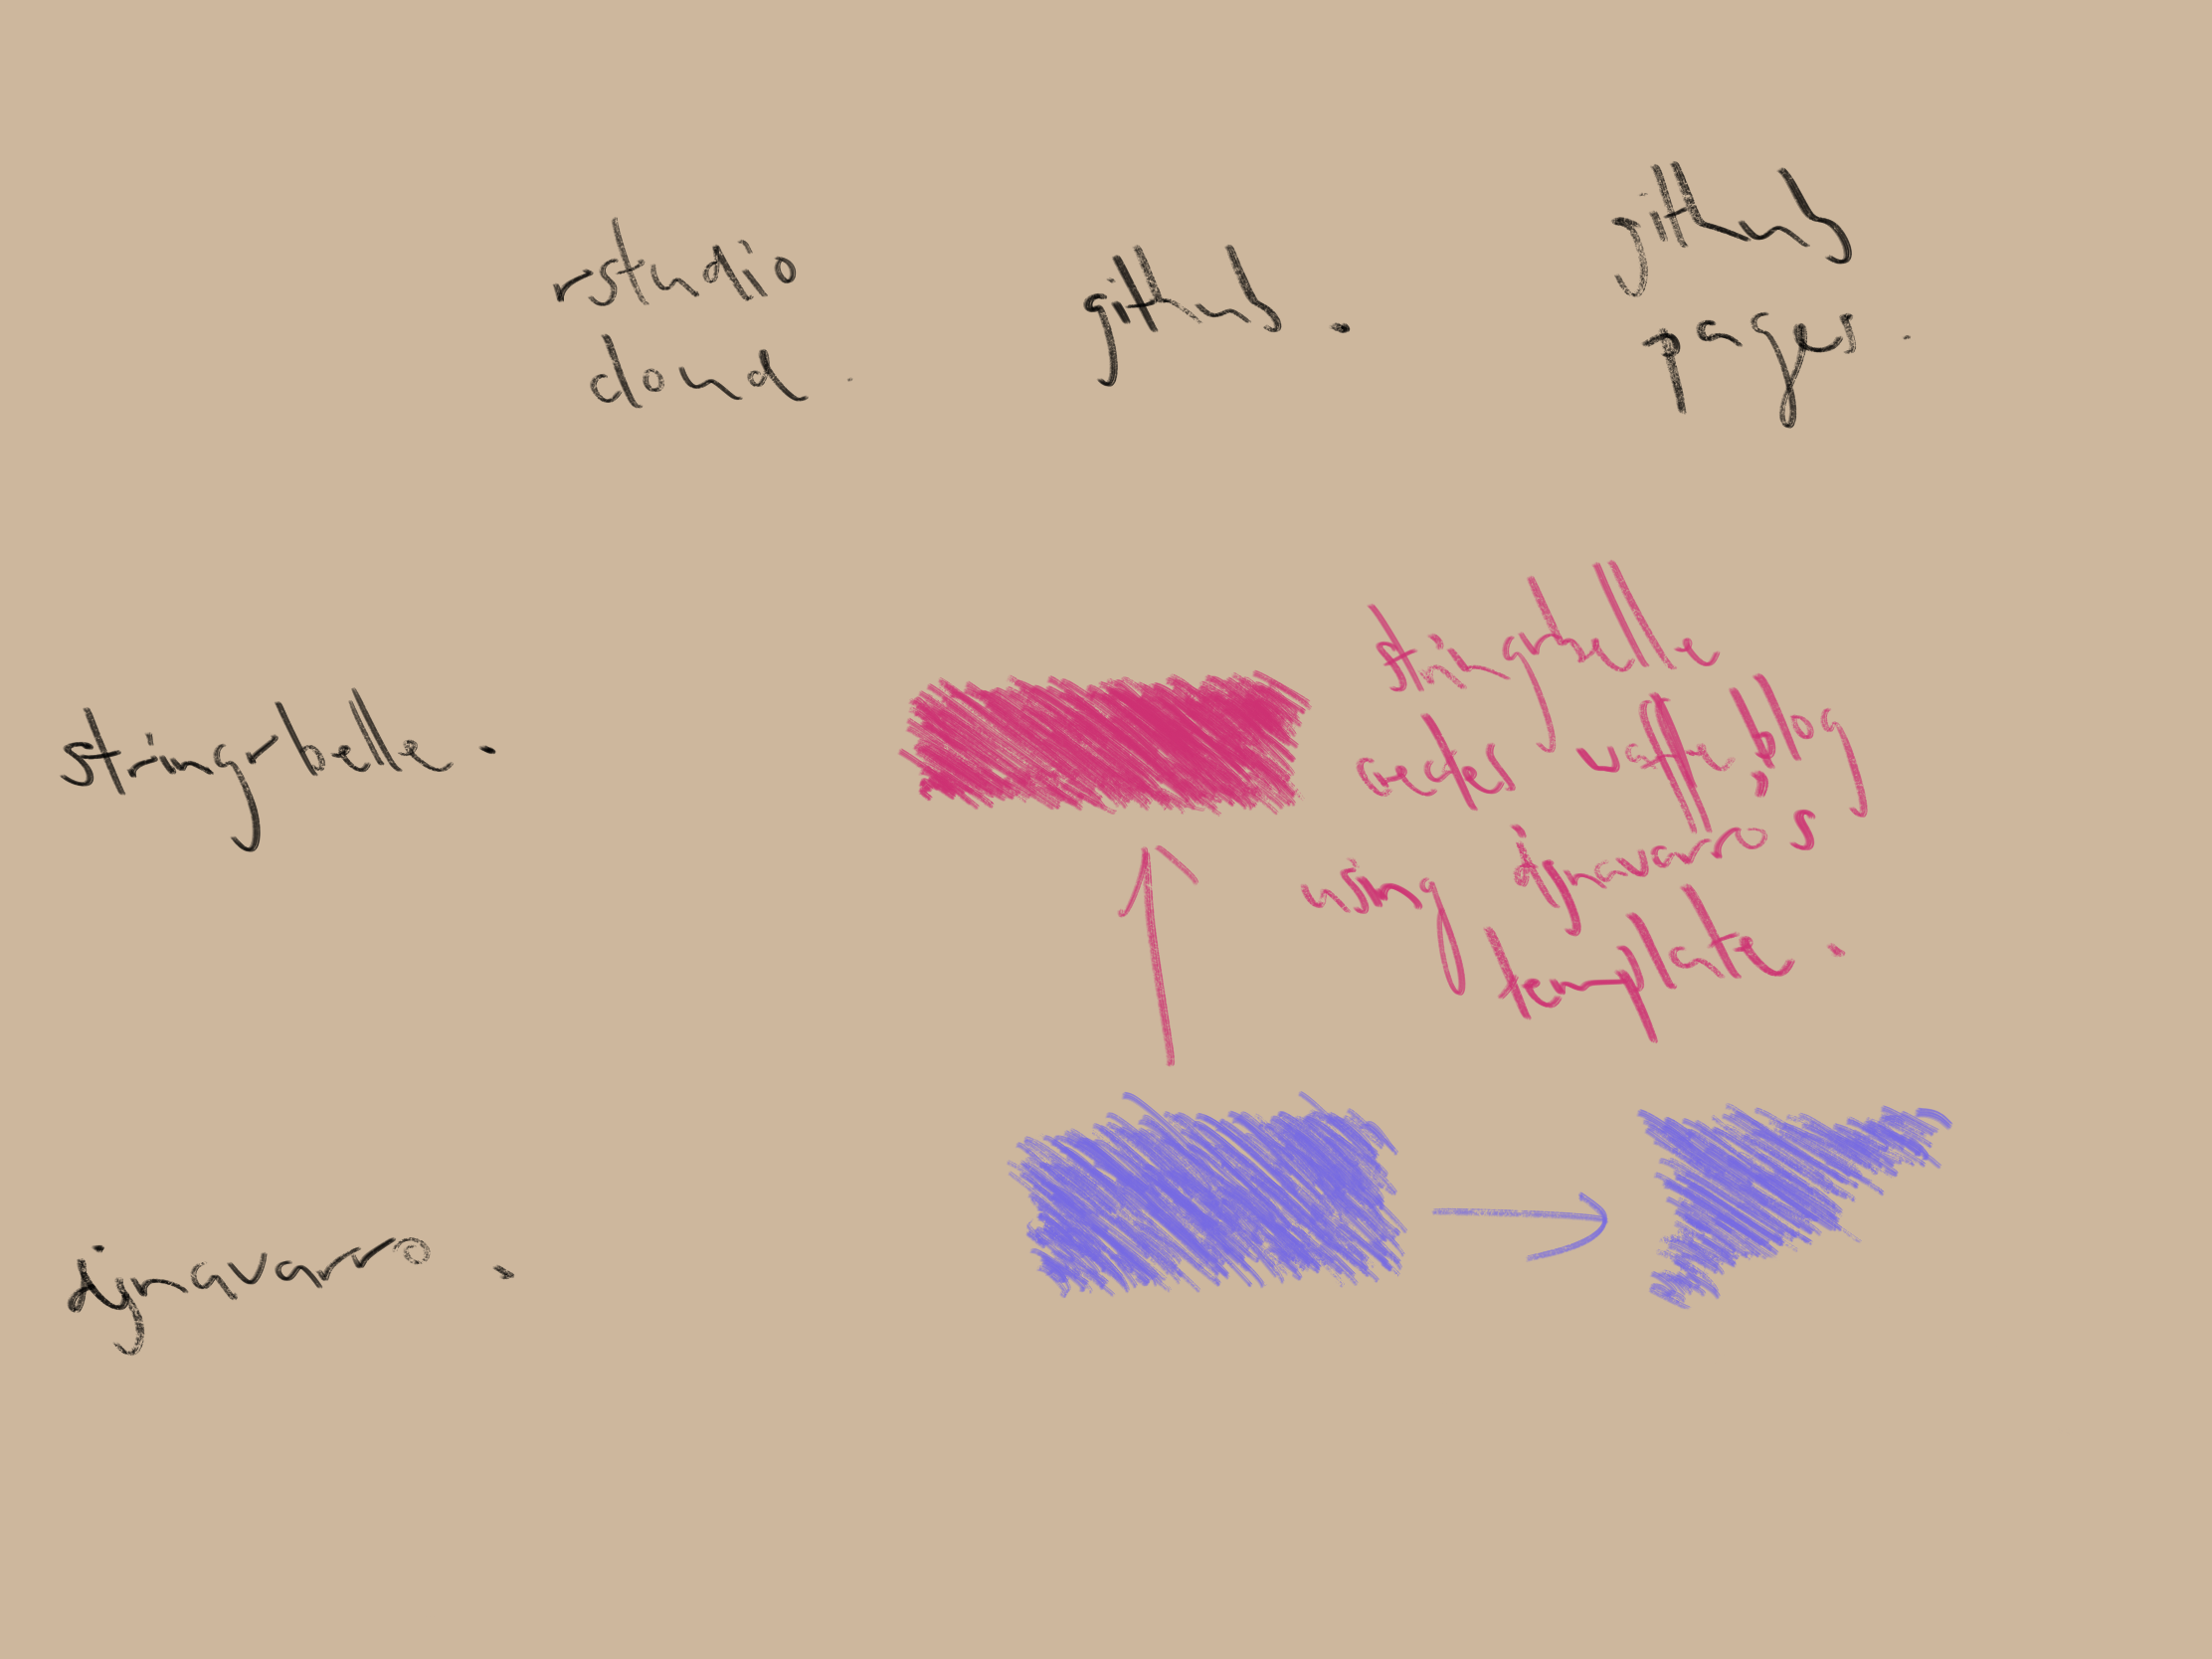 rstudio
cloud.
github.
github
pages.
stringrbelle.
stringrbelle
creates waffle; blog
using djnavarros
template.
djnavarro.